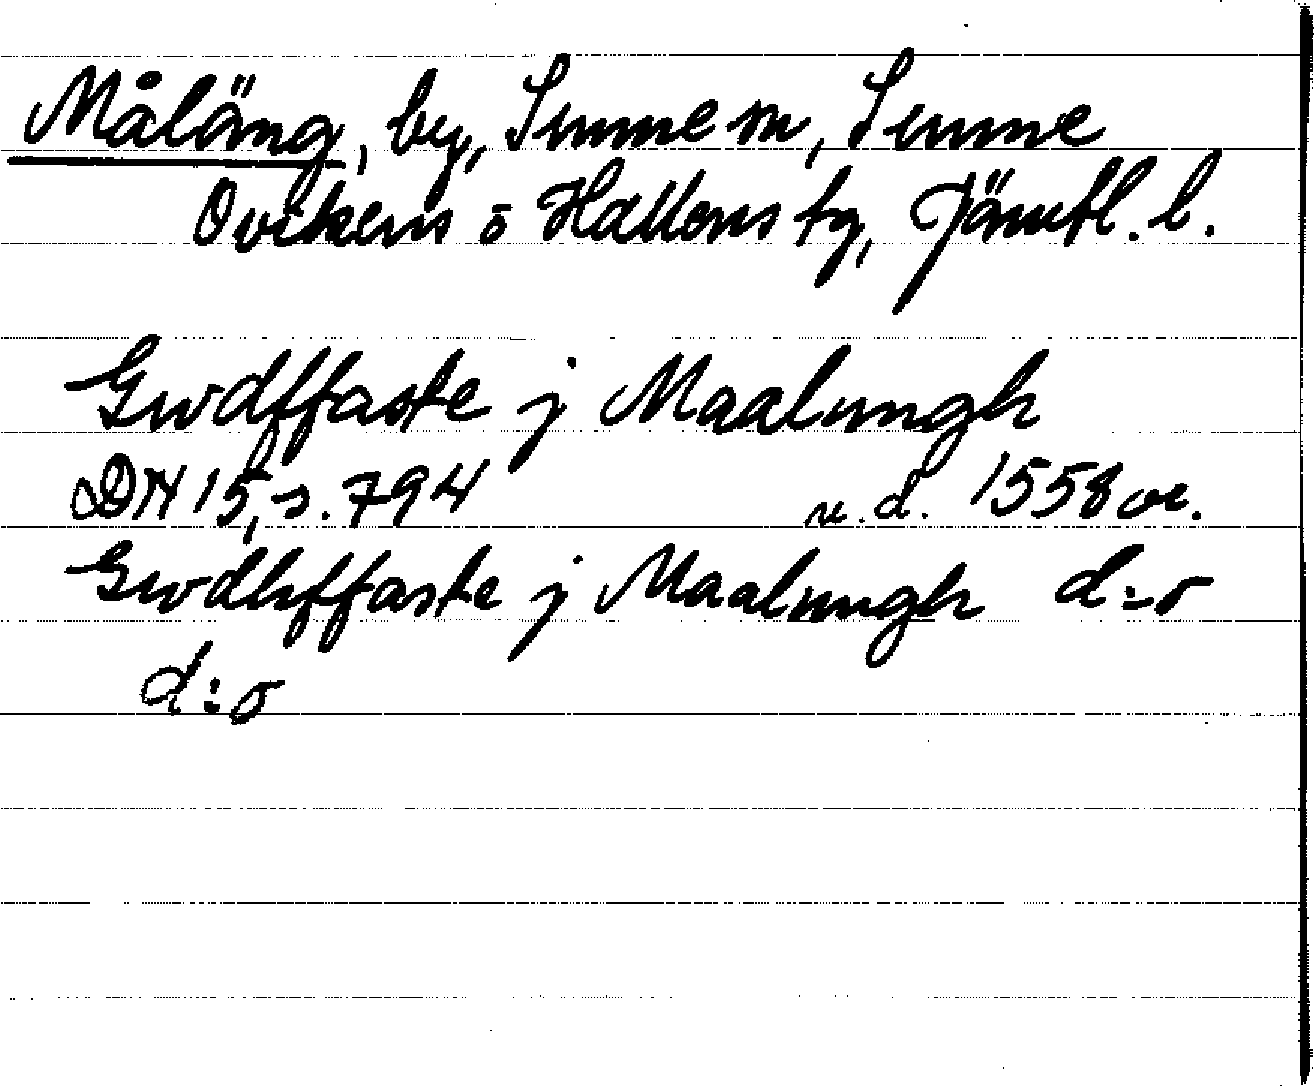 Måläng, by, Sunne sn, Sunne
Ovikens o Hallens tg, Jämtl. l.
Gwdffaste j Maalungh
DN 15, s. 794 u.d. 1558 or.
Gwdhffaste j Maalungh d:o
d:o